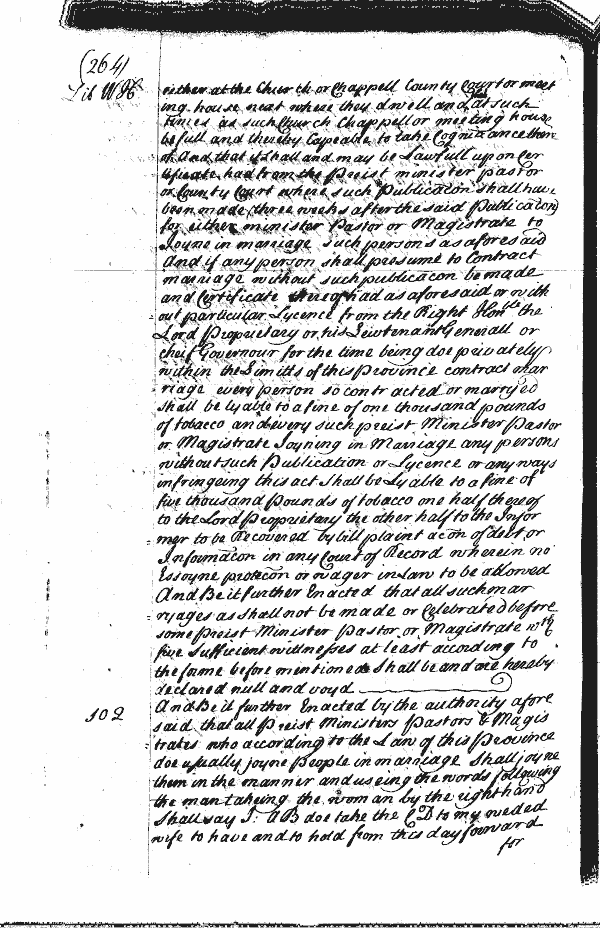 (264)
Lib WH
either at the Church or Chappell County Court or meet
ing house next where they dwell and at such
times as such Church Chappell or meeting house
be full and thereby Capeable to take Cognizance there
of And that itt shall and may be Lawfull upon Cer
tificate had from the Preist minister pastor
or County Court where such Publicacon shall have
been made three weeks after the said Publicacon
for either minister Pastor or Magistrate to
Joyne in marriage such persons as aforesaid
And if any person shall presume to Contract
marriage without such publicacon be made
and Certificate thereof had as aforesaid or with
out particular Lycence from the Right Honble the
Lord Proprietary or his Liewtenant Generall or
cheif Governour for the time being doe privately
within the Limitts of this Province contract mar
riage every person so contracted or marryed
shall be lyable to a fine of one thousand pounds
of tobacco and every such preist Minister Pastor
or Magistrate Joyning in Marriage any persons
without such Publication or Lycence or any ways
infringeing this act shall be Lyable to a fine of
five thousand Pounds of tobacco one half thereof
to the Lord Proprietary the other half to the Infor
mer to be Recovered by bill plaint acon of debt or
Informacon in any Court of Record wherein no
Essoyne protecon or wager in Law to be allowed
And Be it further Enacted that all such mar
ryages as shall not be made or Celebrated before
some Preist Minister Pastor or Magistrate wth
five Sufficient wittnesses at least according to
the forme before mentioned shall be and are hereby
declared null and voyd
102
And Be it further Enacted by the authority afore
said that all Preist Ministers Pastors & Magis
trates who according to the Law of this Province
doe usually joyne People in marriage shall joyne
them in the manner and useing the words following
the man takeing the woman by the right hand
shall say I: AB doe take the CD to my weded
wife to have and to hold from this day forward
for